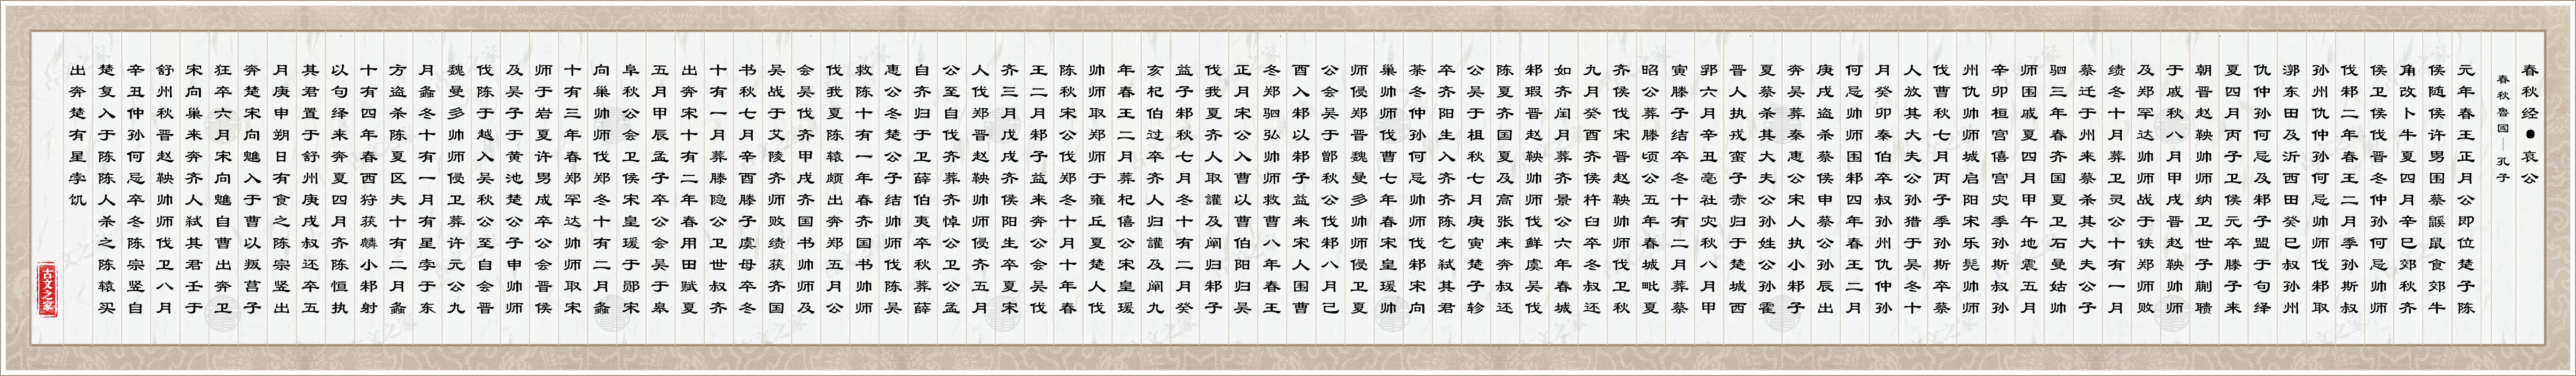 春秋经●哀公
春秋魯國—孔子
元年春王正月公即位楚子陈
侯随侯许男围蔡鼷鼠食郊牛
角改卜牛夏四月辛巳郊秋齐
侯卫侯伐晋冬仲孙何忌帅师
伐邾二年春王二月季孙斯叔
孙州仇仲孙何忌帅师伐邾取
漷东田及沂西田癸巳叔孙州
仇仲孙何忌及邾子盟于句绎
夏四月丙子卫侯元卒滕子来
朝晋赵鞅帅师纳卫世子蒯聩
于戚秋八月甲戌晋赵鞅帅师
及郑罕达帅师战于铁郑师败
绩冬十月葬卫灵公十有一月
蔡迁于州来蔡杀其大夫公子
驷三年春齐国夏卫石曼姑帅
师围戚夏四月甲午地震五月
辛卯桓宫僖宫灾季孙斯叔孙
州仇帅师城启阳宋乐髡帅师
伐曹秋七月丙子季孙斯卒蔡
人放其大夫公孙猎于吴冬十
月癸卯秦伯卒叔孙州仇仲孙
何忌帅师围邾四年春王二月
庚戌盗杀蔡侯申蔡公孙辰出
奔吴葬秦惠公宋人执小邾子
夏蔡杀其大夫公孙姓公孙霍
晋人执戎蛮子赤归于楚城西
郛六月辛丑亳社灾秋八月甲
寅滕子结卒冬十有二月葬蔡
昭公葬滕顷公五年春城毗夏
齐侯伐宋晋赵鞅帅师伐卫秋
九月癸酉齐侯杵臼卒冬叔还
如齐闰月葬齐景公六年春城
邾瑕晋赵鞅帅师伐鲜虞吴伐
陈夏齐国夏及高张来奔叔还
公吴于祖秋七月庚寅楚子轸
卒齐阳生入齐齐陈乞弑其君
荼冬仲孙何忌帅师伐邾宋向
巢帅师伐曹七年春宋皇瑗帅
师侵郑晋魏曼多帅师侵卫夏
公会吴于鄫秋公伐邾八月己
酉入邾以邾子益来宋人围曹
冬郑驷弘帅师救曹八年春王
正月宋公入曹以曹伯阳归吴
伐我夏齐人取讙及阐归邾子
益子邾秋七月冬十有二月癸
亥杞伯过卒齐人归讙及阐九
年春王二月葬杞僖公宋皇瑗
帅师取郑师于雍丘夏楚人伐
陈秋宋公伐郑冬十月十年春
王二月邾子益来奔公会吴伐
齐三月戊戌齐侯阳生卒夏宋
人伐郑晋赵鞅帅师侵齐五月
公至自伐齐葬齐悼公卫公孟
自齐归于卫薛伯夷卒秋葬薛
惠公冬楚公子结帅师伐陈吴
救陈十有一年春齐国书帅师
伐我夏陈辕颇出奔郑五月公
会吴伐齐甲戌齐国书帅师及
吴战于艾陵齐师败绩获齐国
书秋七月辛酉滕子虞母卒冬
十有一月葬滕隐公卫世叔齐
出奔宋十有二年春用田赋夏
五月甲辰孟子卒公会吴于皋
阜秋公会卫侯宋皇瑗于郧宋
向巢帅师伐郑冬十有二月螽
十有三年春郑罕达帅师取宋
师于岩夏许男成卒公会晋侯
及吴子于黄池楚公子申帅师
伐陈于越入吴秋公至自会晋
魏曼多帅师侵卫葬许元公九
月螽冬十有一月有星孛于东
方盗杀陈夏区夫十有二月螽
十有四年春西狩获麟小邾射
以句绎来奔夏四月齐陈恒执
其君置于舒州庚戌叔还卒五
月庚申朔日有食之陈宗竖出
奔楚宋向魋入于曹以叛莒子
狂卒六月宋向魋自曹出奔卫
宋向巢来奔齐人弑其君壬于
舒州秋晋赵鞅帅师伐卫八月
辛丑仲孙何忌卒冬陈宗竖自
楚复入于陈陈人杀之陈辕买
出奔楚有星孛饥
古文之家